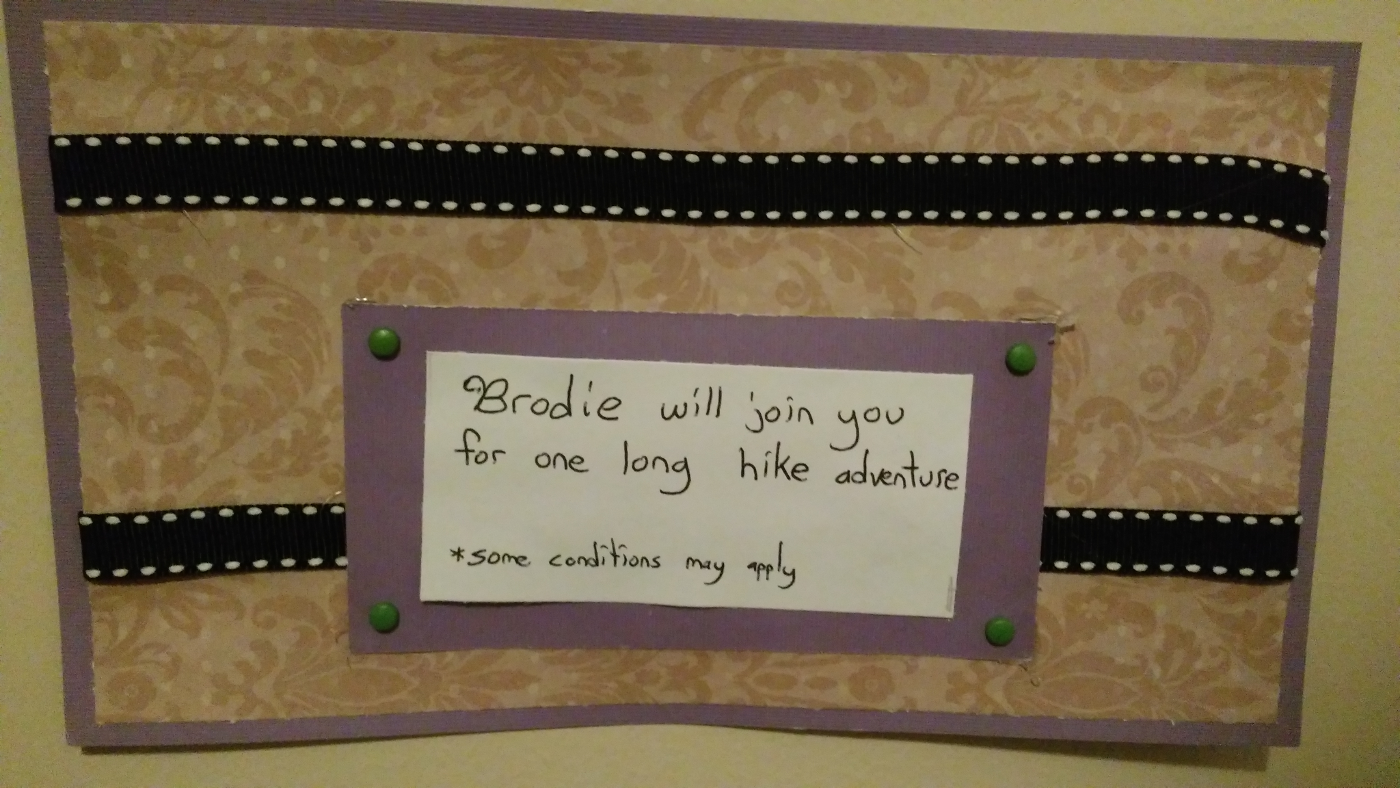 Brodie will join you
for one long hike adventure
*some conditions may apply